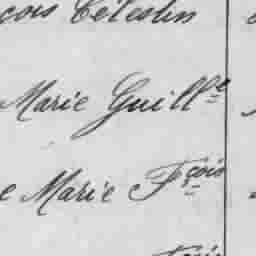 çois Célestin
Marie Guill^e
e Marie F^çois